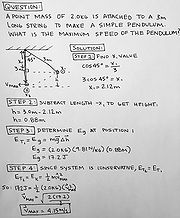 QUESTION:
A POINT MASS OF 2.0kg IS ATTACHED TO A 3m
LONG STRING TO MAKE A SIMPLE PENDULUM.
WHAT IS THE MAXIMUM SPEED OF THE PENDULUM?
SOLUTION:
STEP 1: FIND X, VALUE
3cos45° = x₁
x₁ = 2.12m
STEP 2: SUBTRACT LENGTH - X, TO GET HEIGHT:
h = 3.0m - 2.12m
h = 0.88m
STEP 3: DETERMINE Eg AT POSITION 1
Eg = (2.0kg)(9.81N/kg)(0.88m)
Eg = 17.2J
STEP 4: SINCE SYSTEM IS CONSERVATIVE,